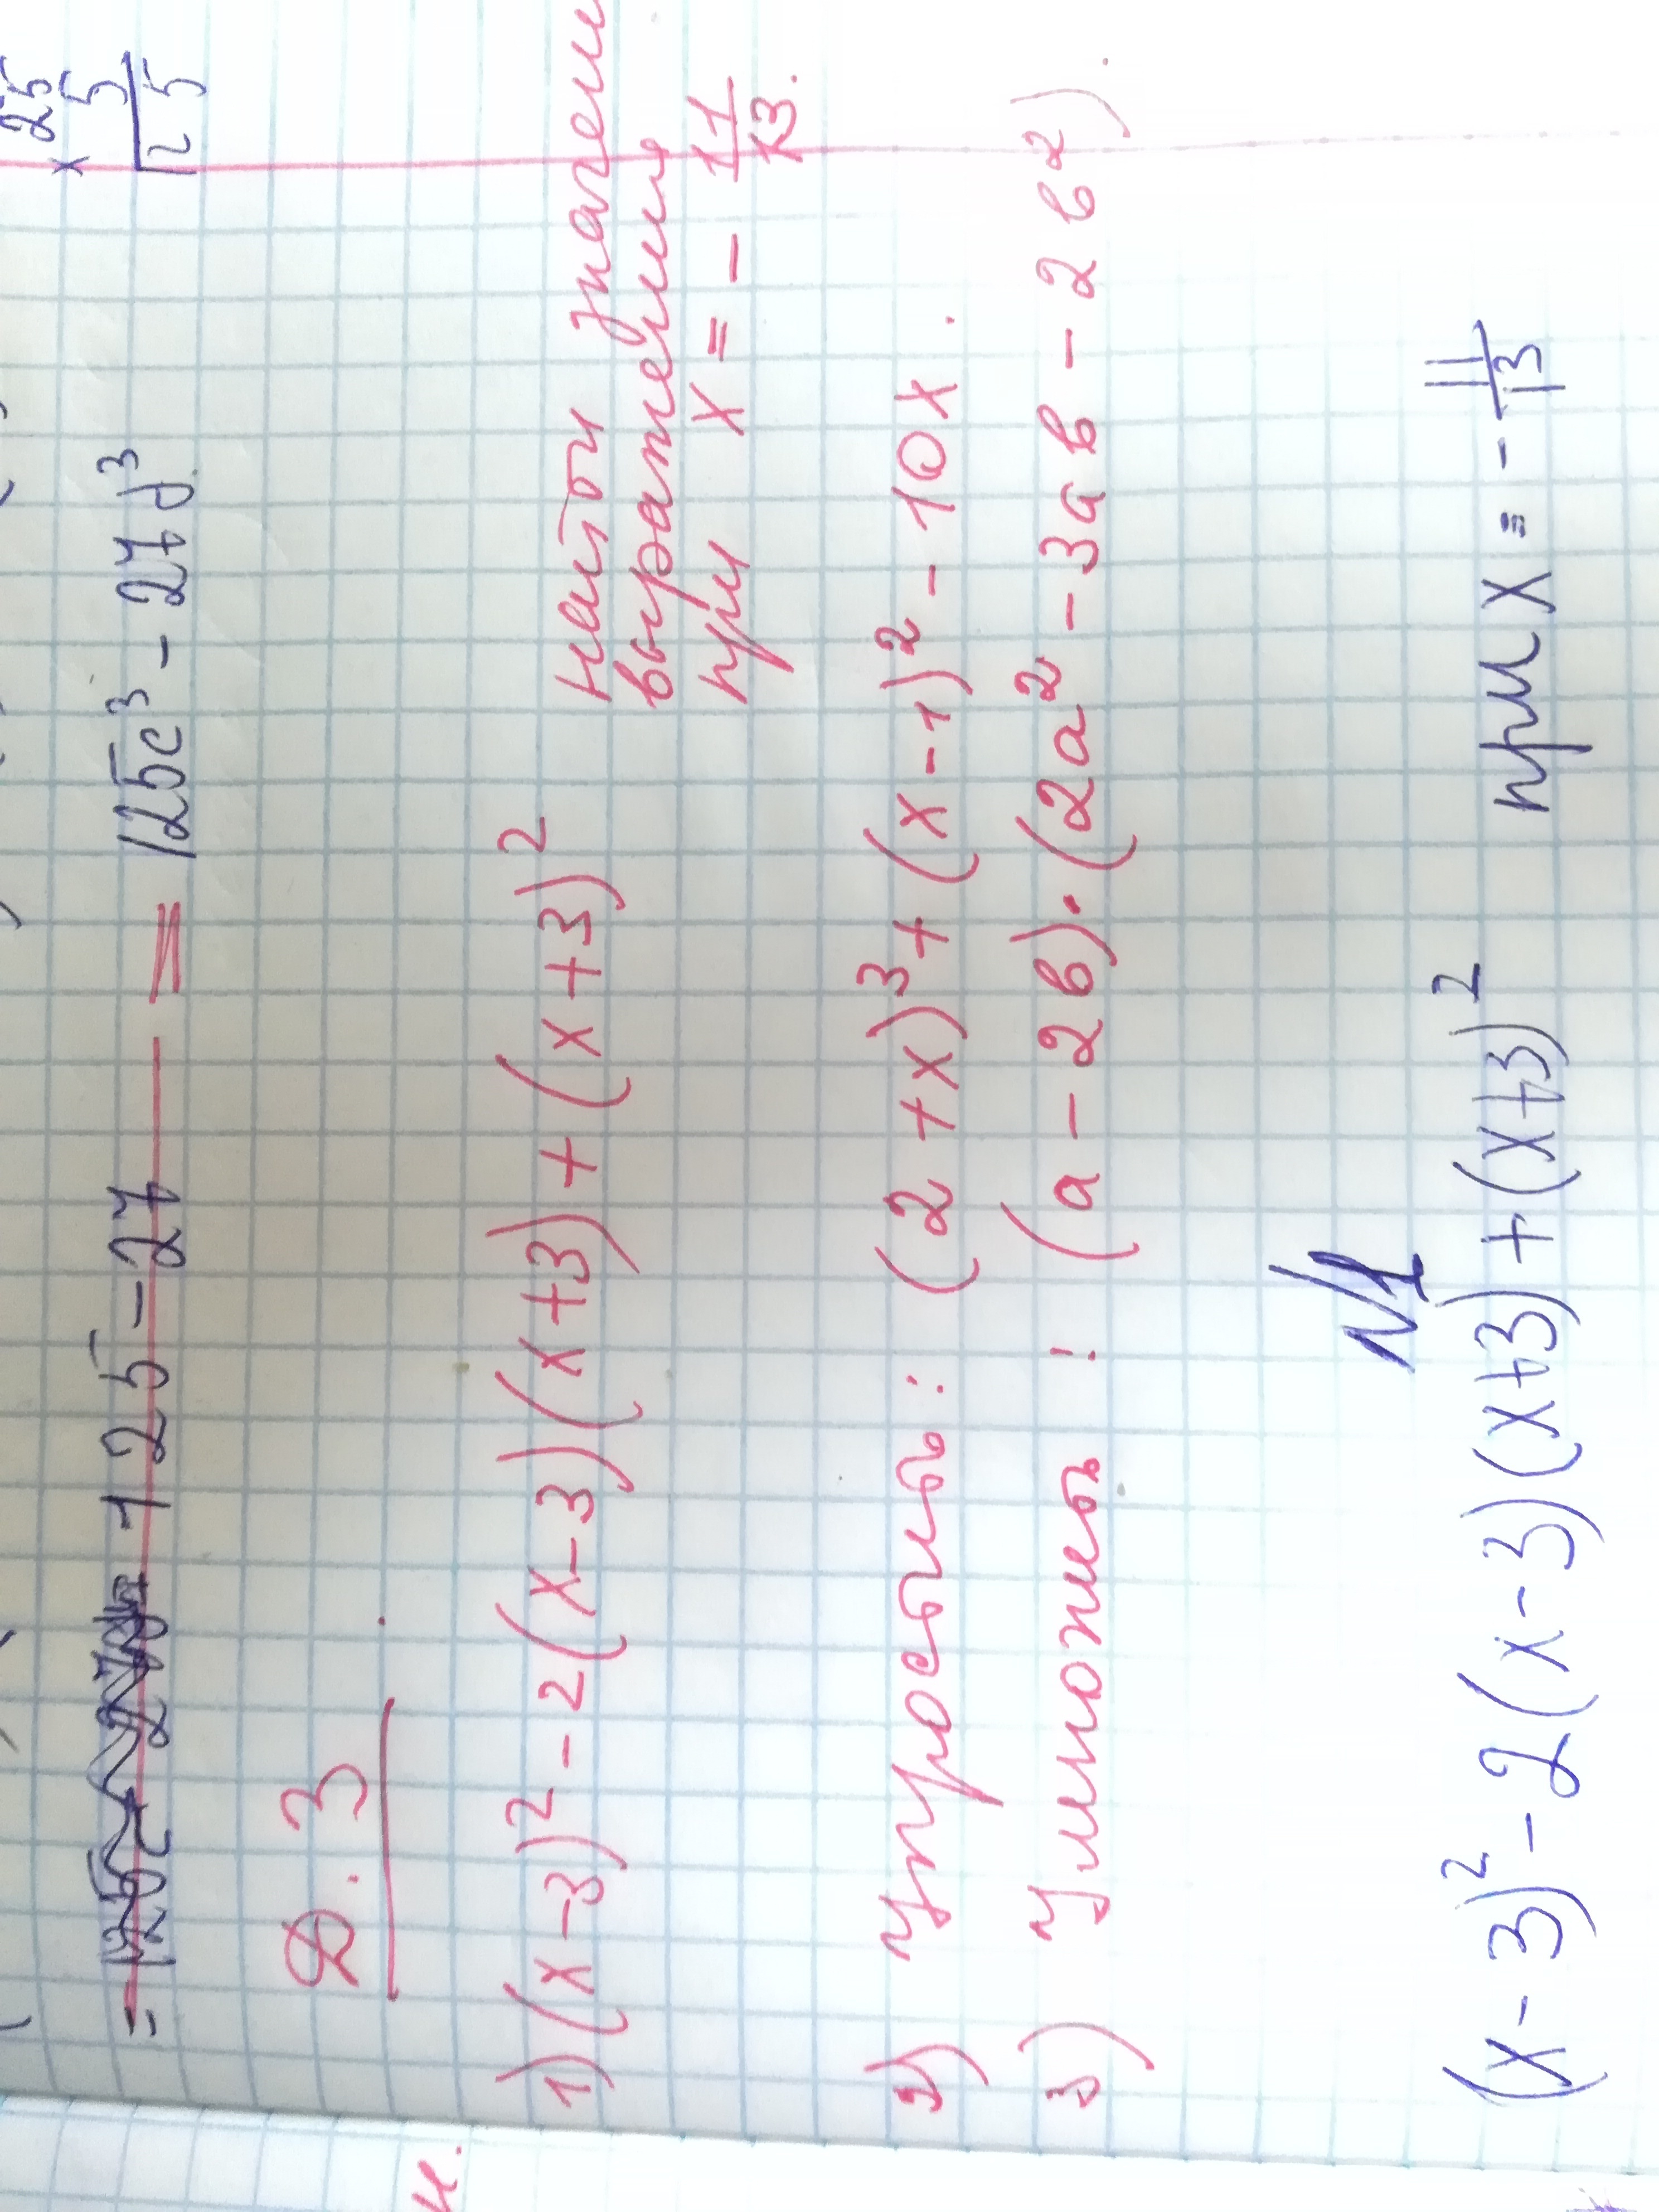 × 25
5
125
= 125 - 27 = 125c³ - 27d³
Д.З
1) (x-3)² - 2(x-3)(x+3) + (x+3)²
найти значени
выражения
при x = - 11/13.
2) упростить: (2+x)³ + (x-1)² - 10x.
3) умножить: (a-2b)·(2a² - 3ab - 2b²).
N1
(x-3)² - 2(x-3)(x+3) + (x+3)² при x = - 11/13
и.